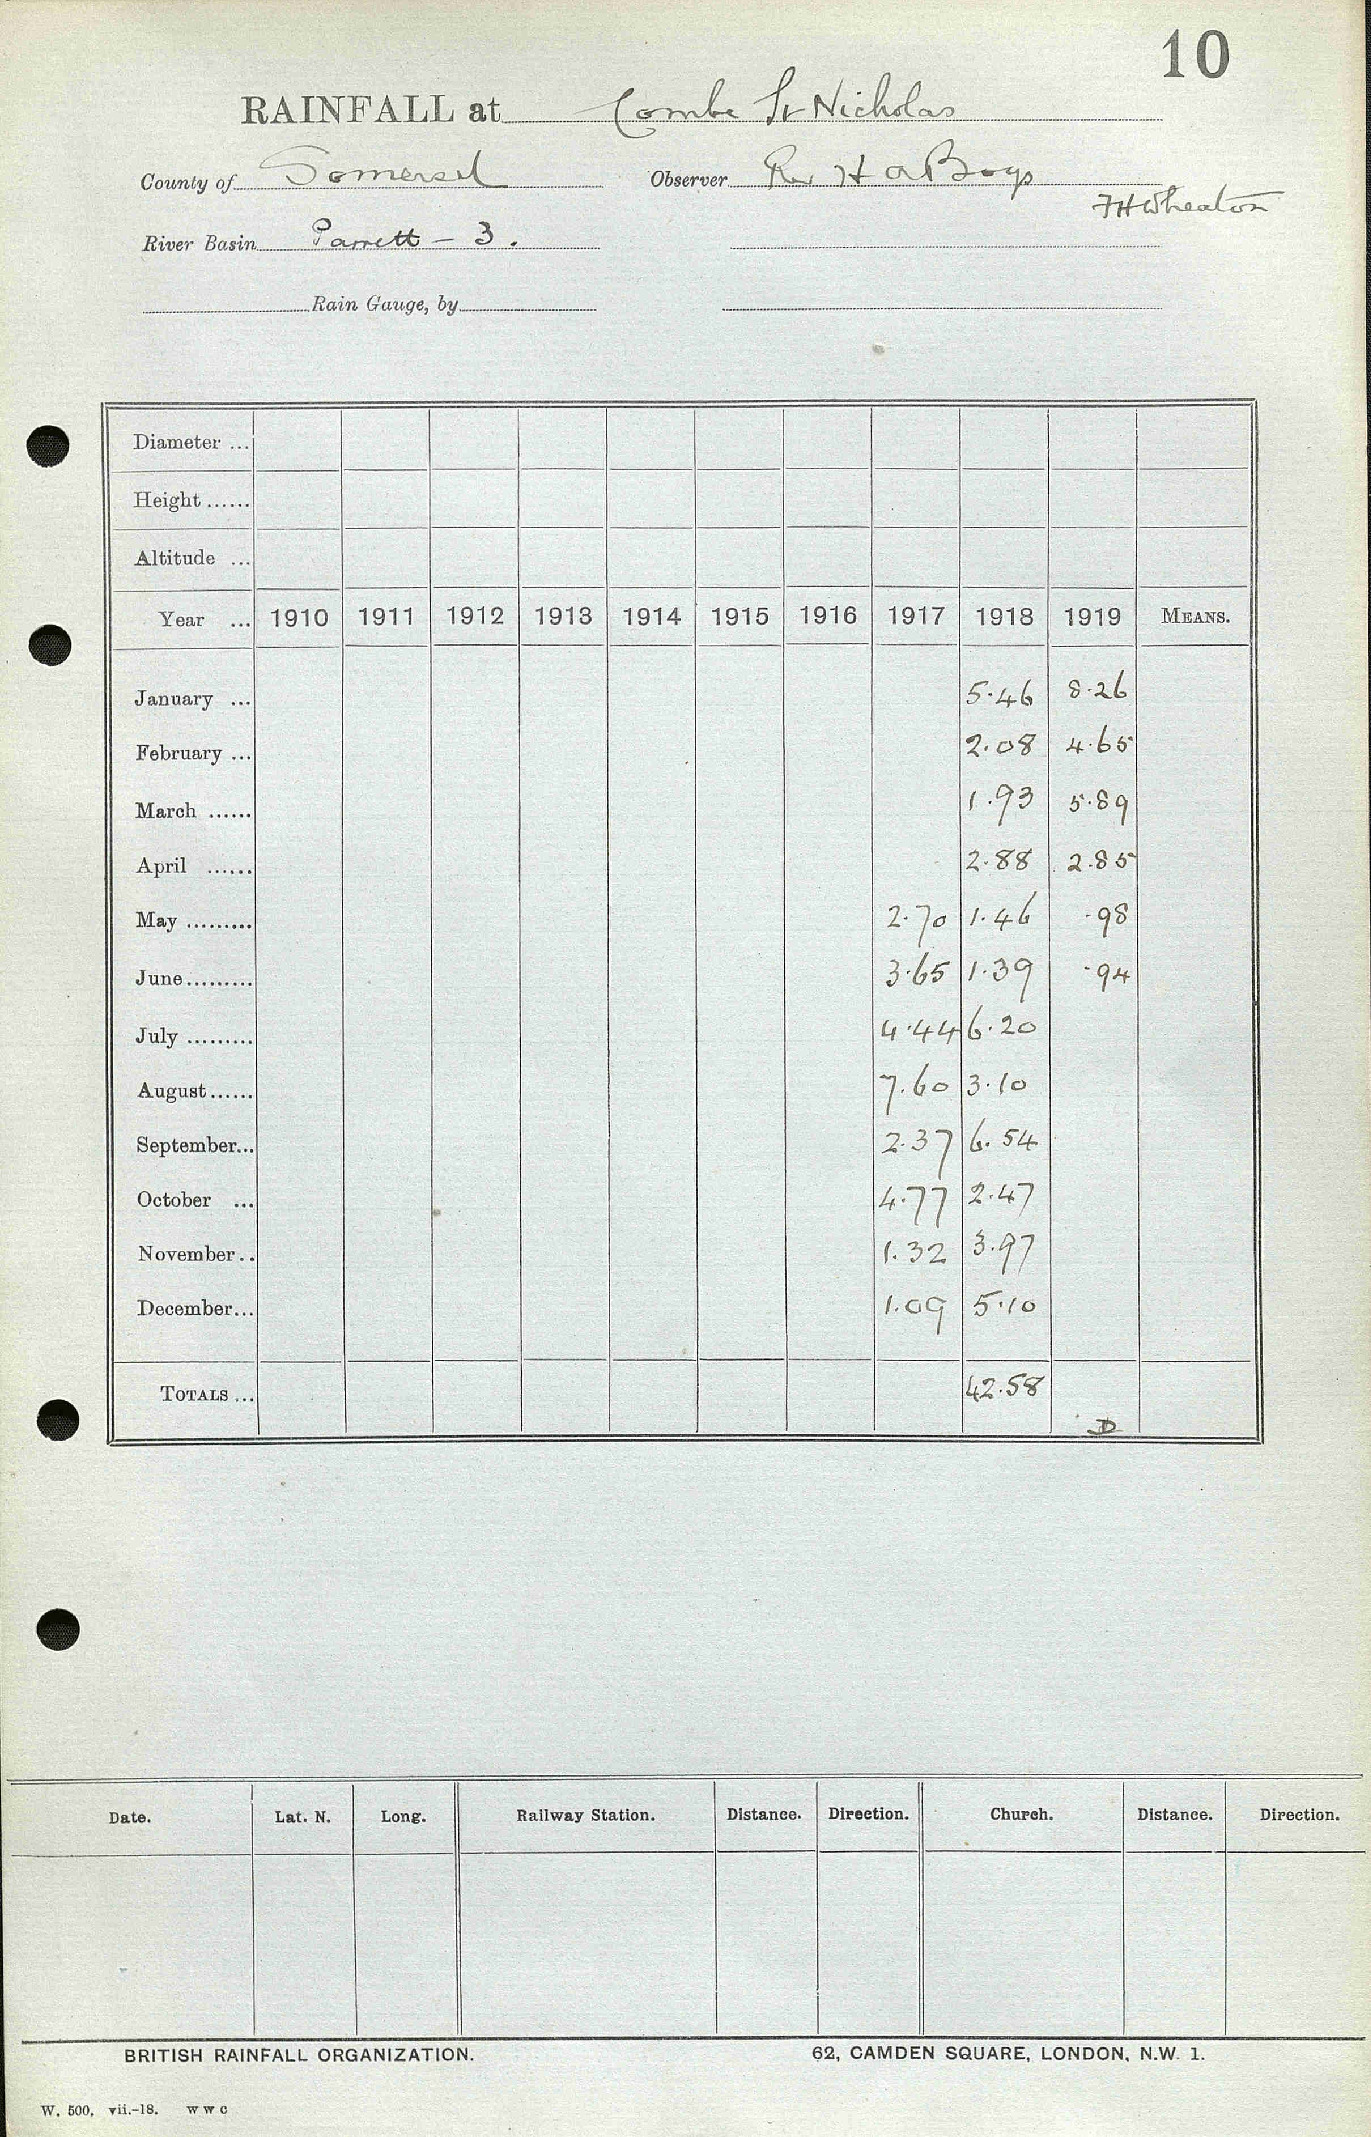 10
RAINFALL at Combe St Nicholas
County of Somerset Observer Rev H A Boys
F H Wheaton
River Basin Parrett - 3.
Rain Gauge, by
Diameter ...
Height ......
Altitude ...
Year ... 1910 1911 1912 1913 1914 1915 1916 1917 1918 1919 MEANS.
January ... 5.46 8.26
February ... 2.08 4.65
March ...... 1.93 5.89
April ...... 2.88 2.85
May ......... 2.70 1.46 .98
June ......... 3.65 1.39 .94
July ......... 4.44 6.20
August ...... 7.60 3.10
September... 2.37 6.54
October ... 4.77 2.47
November.. 1.32 3.97
December... 1.09 5.10
TOTALS ... 42.58
D
Date. Lat. N. Long. Railway Station. Distance. Direction. Church. Distance. Direction.
BRITISH RAINFALL ORGANIZATION. 62, CAMDEN SQUARE, LONDON, N.W. 1.
W. 500. vii.-18. W W C